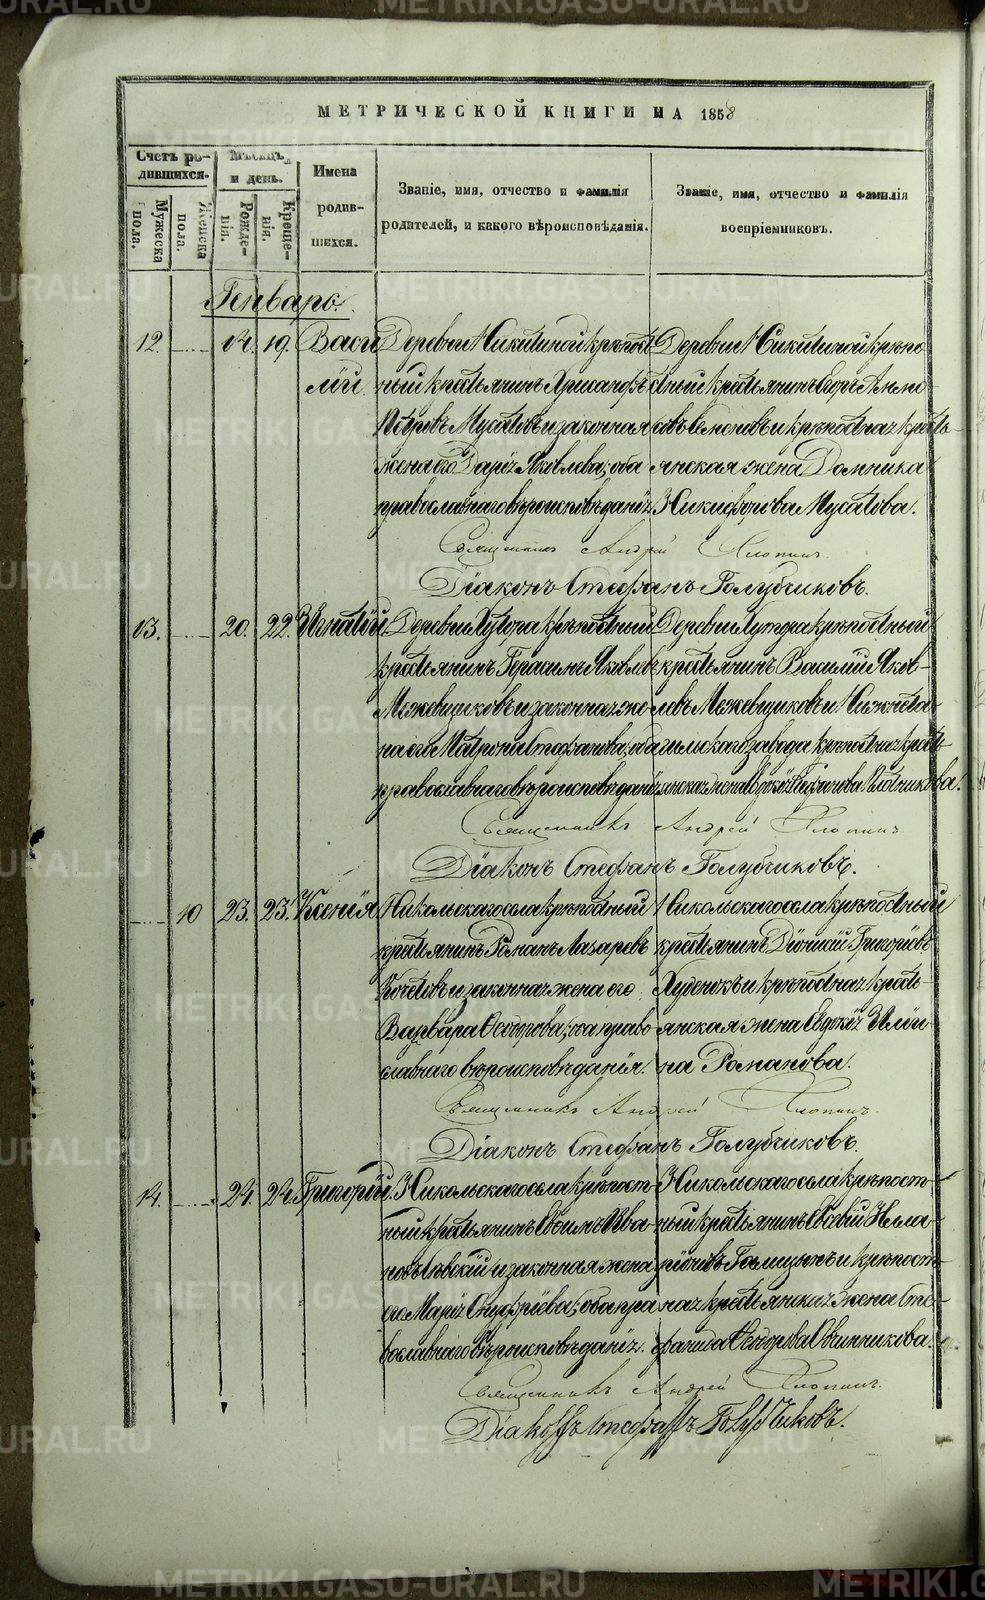 МЕТРИЧЕСКОЙ КНИГИ НА 1858
Счетъ ро-
дившихся.
Мужеска пола.
Женска пола.
Мѣсяцъ
и день.
Рожде-
нія.
Креще-
нія.
Имена
родив-
шихся.
Званіе, имя, отчество и фамилія
родителей, и какого вѣроисповѣданія.
Званіе, имя, отчество и фамилія
воспріемниковъ.
Генварь.
12. 14. 19. Васи
лій
Деревни Никитиной крѣпост
ный крестьянинъ Хрисанфъ
Петровъ Мусатовъ и законная
жена его Дарія Яковлева, оба
православнаго вѣроисповѣданія
Деревни Никитиной крѣпо
стный крестьянинъ
Семеновъ и крѣпостная кресть-
янская жена Домника
Никифорова Мусатова.
Священникъ Андрей Хлопин
Діаконъ Стефанъ Голубчиковъ.
13. 20. 22. Игнатій.
Деревни Хутора крѣпостный
крестьянинъ Герасимъ Яковлевъ
Межевщиковъ и законная же
на его Матрона Стефанова, оба
православнаго вѣроисповѣданія
Деревни Хутора крѣпостный
крестьянинъ Василій Яков-
левъ Межевщиковъ и Нижнета
гильскаго завода крѣпостная кресть
янская жена Плотникова.
Священникъ Андрей Хлопинъ
Діаконъ Стефанъ Голубчиковъ.
10 23. 23. Ксенія
Никольскаго села крѣпостный
крестьянинъ Романъ Лазаревъ
Кочетовъ и законная жена его
Варвара Ѳеодорова, оба право
славнаго вѣроисповѣданія.
Никольскаго села крѣпостный
крестьянинъ Діонисій Григоріевъ
Худенокъ и крѣпостная кресть-
янская жена Евдокія Иліи
на Романова.
Священникъ Андрей Хлопинъ
Діаконъ Стефанъ Голубчиковъ.
14. 24. 24. Григорій.
Никольскаго села крѣпост
ный крестьянинъ Ефимъ Ива-
новъ и законная жена
его Марія Онуфріева, оба пра
вославнаго вѣроисповѣданія.
Никольскаго села крѣпост
ный крестьянинъ Евсевій
Голицынъ и крѣпост
ная крестьянская жена Сте-
фанида Ѳеодорова Овчинникова.
Священникъ Андрей Хлопинъ.
Діаконъ Стефанъ Голубчиковъ.
METRIKI.GASO-URAL.RU